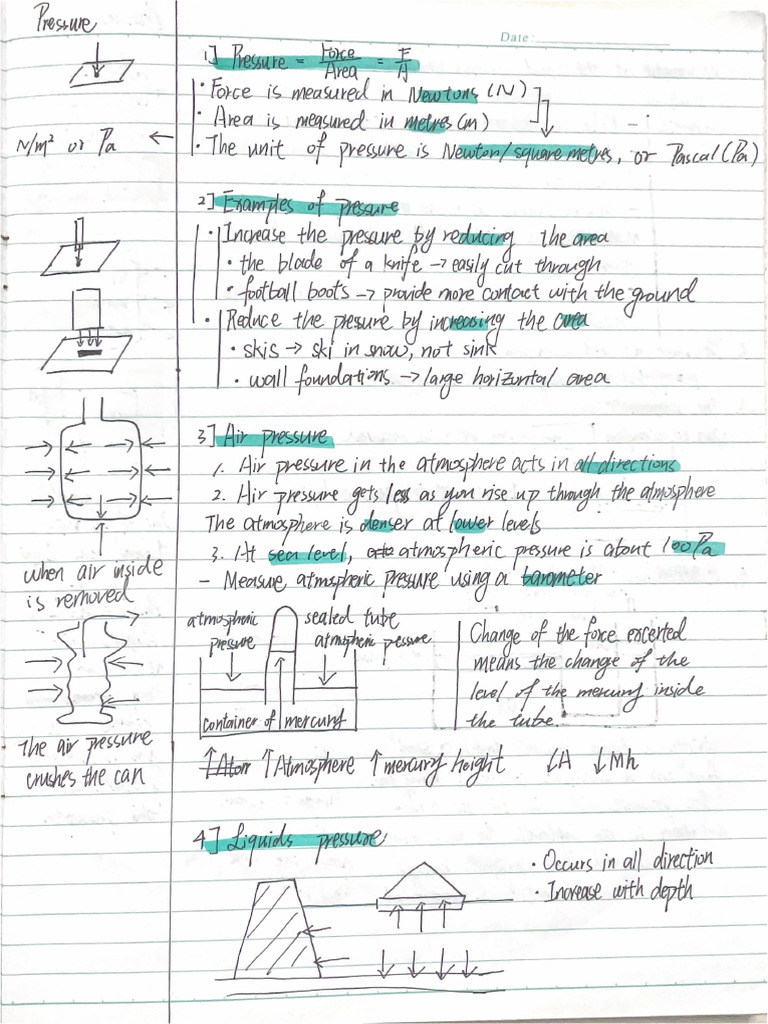 Pressure
Date:
1] Pressure = Force/Area = F/A
· Force is measured in Newtons (N)
· Area is measured in metres (m)
N/m² or Pa ←
· The unit of pressure is Newton/square metres, or Pascal (Pa)
2] Examples of pressure
· Increase the pressure by reducing the area
· the blade of a knife → easily cut through
· football boots → provide more contact with the ground
· Reduce the pressure by increasing the area
· skis → ski in snow, not sink
· wall foundations → large horizontal area
3] Air pressure
1. Air pressure in the atmosphere acts in all directions
2. Air pressure gets less as you rise up through the atmosphere
The atmosphere is denser at lower levels
3. At sea level, atmospheric pressure is about 100Pa
- Measure atmospheric pressure using a barometer
when air inside
is removed
The air pressure
crushes the can
atmospheric
pressure
sealed tube
atmospheric pressure
container of mercury
Change of the force excerted
means the change of the
level of the mercury inside
the tube.
↑Atom ↑Atmosphere ↑mercury height ↓A ↓Mh
4] Liquids pressure
· Occurs in all direction
· Increase with depth